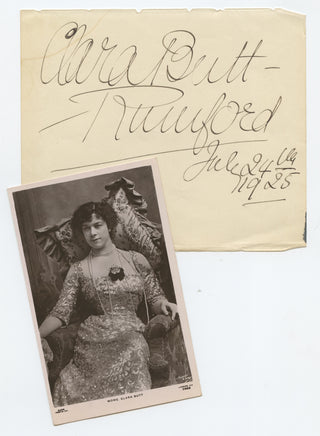 Clara Butt-
-Rumford
July 24th
1925
MDME. CLARA BUTT